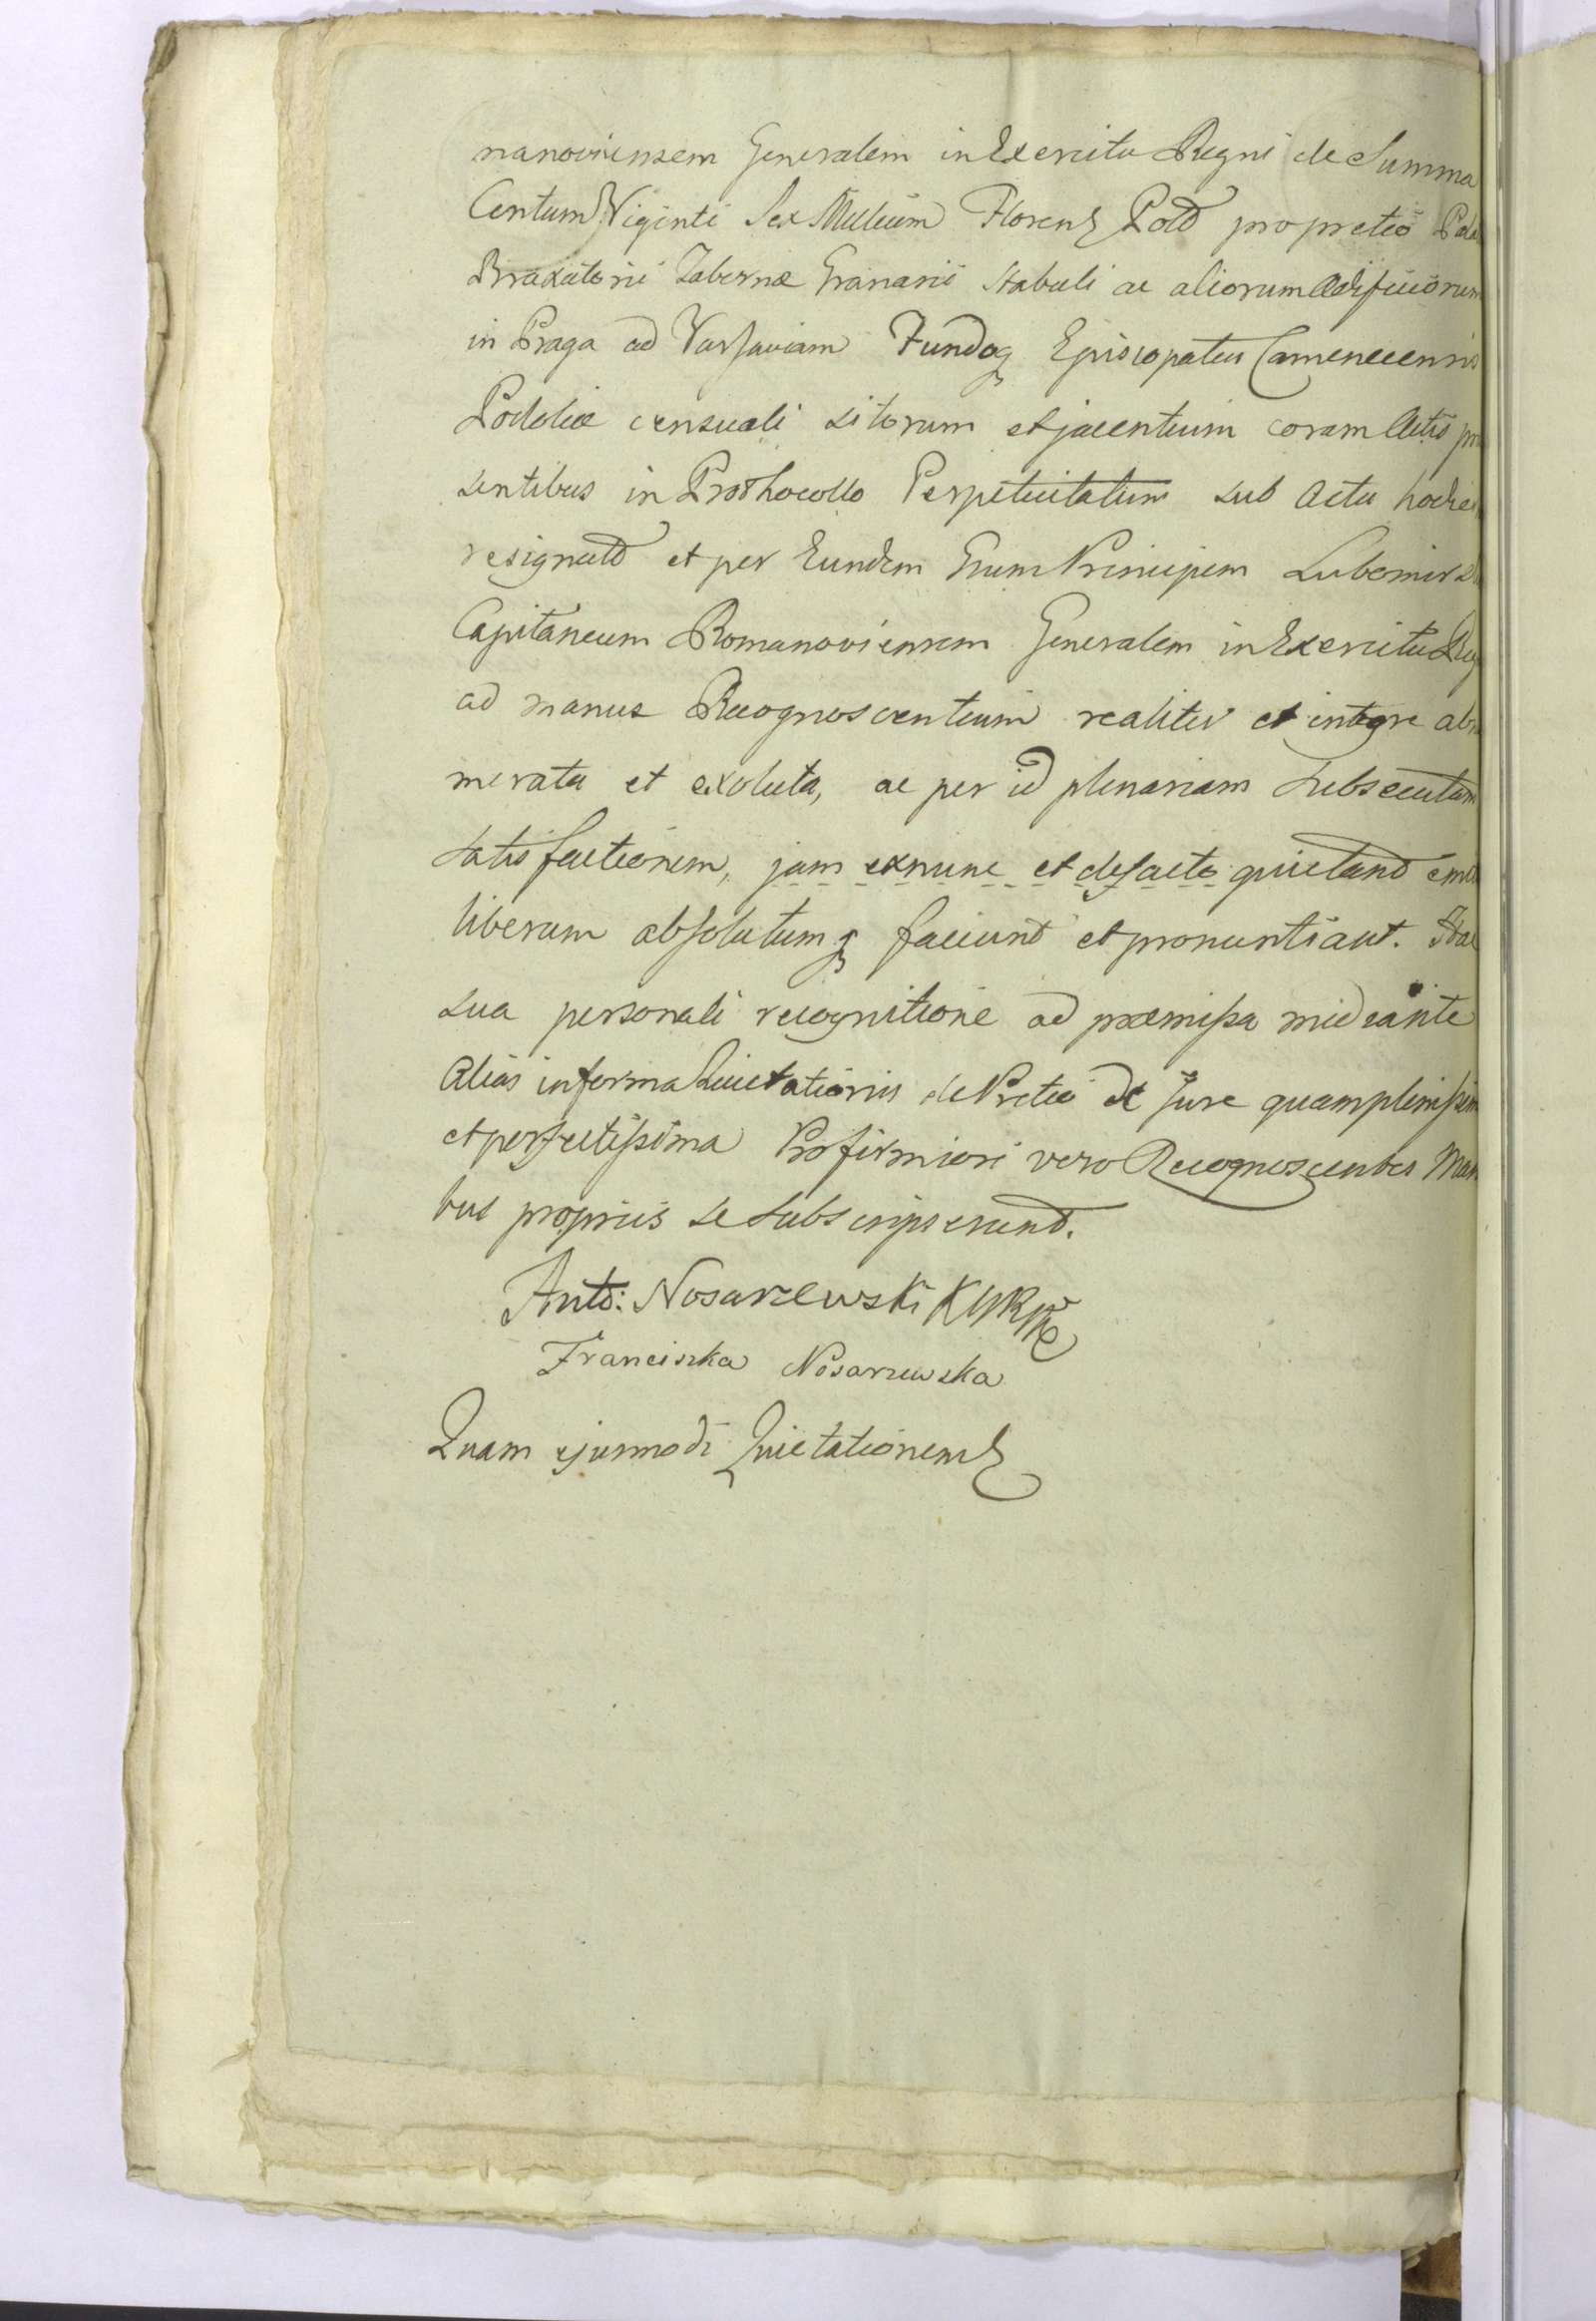 manoviensem Generalem in Exercitu Regni de Summa
Centum Viginti Sex Millium Floren Pold pro pretio Pala
Braxatorii Tabernæ Granarii Stabuli ac aliorum Ædificiorum
in Praga ad Varsaviam Fundoq Episcopatus Camenecensis
Podoliæ censuali sitorum et jacentium coram Actis præ
sentibus in Prothocollo Perpetuitatum sub Actu hodier
resignatd et per Eundem Principem Lubomirs
Capitaneum Romanoviensem Generalem in Exercitu Reg
ad manus Recognoscentium realiter et integre abnu
merata et exoluta, ac per id plenariam Subsecutam
satisfactionem, jam exnunc et defacto quietand
liberum absolutumq faciunt et pronuntiant. Hac
sua personali recognitione ad præmissa mediante
Alias in forma Quietationis de Pretio de Jure quamplenissim
et perfectissima Pro firmiori vero Recognoscentes Man
bus propriis se subscripserund.
Anto: Nosarzewski
Franciszka Nosarzewska
Quam ejusmodi Quietationem